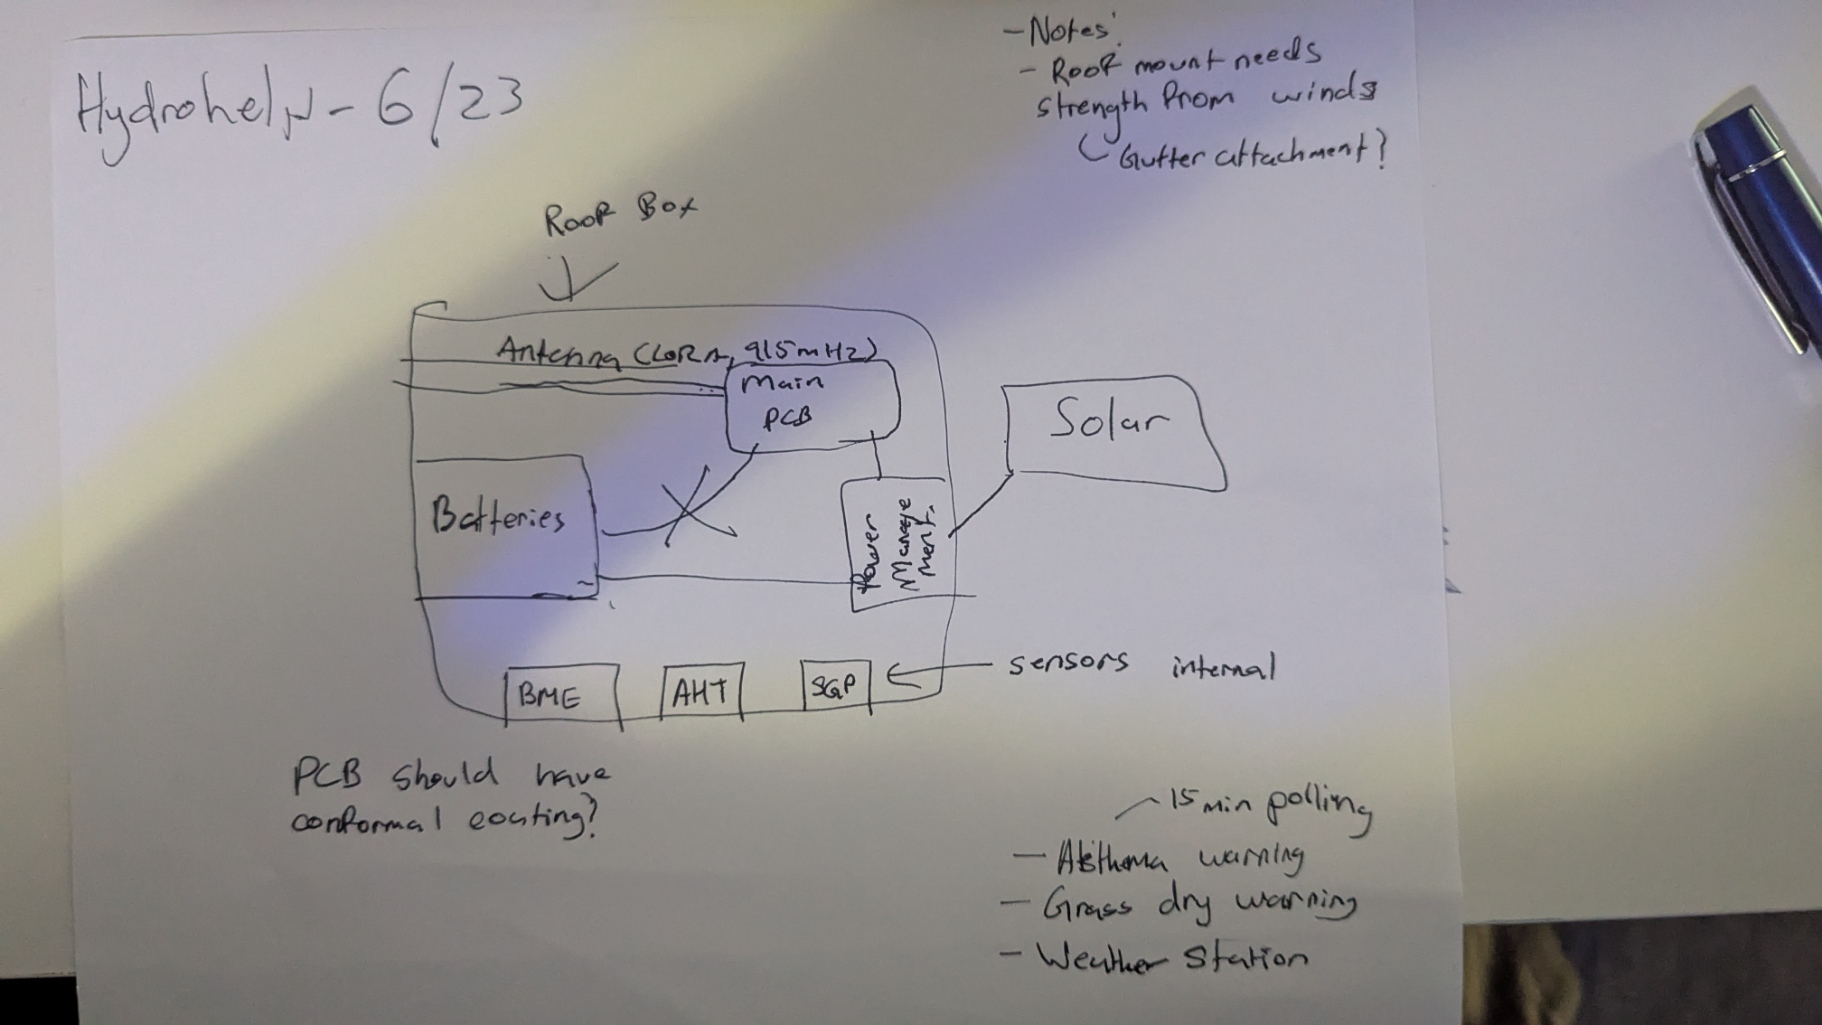 Hydrohelp - 6/23
- Notes:
- Roof mount needs
strength from winds
Gutter attachment?
Roof Box
Antenna (LoRA, 915mHz)
Main
PCB
Solar
Batteries
Power
Manage
ment.
sensors internal
BME
AHT
SGP
PCB should have
conformal coating?
15 min polling
- Asthma warning
- Grass dry warning
- Weather Station